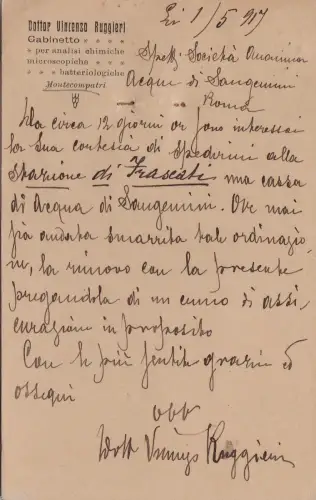 Dottor Vincenzo Ruggieri
Gabinetto
per analisi chimiche
microscopiche
batteriologiche
Montecompatri
Li 1/5 917
Spett. Società Anonima
Acqua di Sangemini
Roma
Da circa 12 giorni or sono interessai
la Sua cortesia di spedirmi alla
Stazione di Frascati una cassa
di Acqua di Sangemini. Ove mai
sia andata smarrita tale ordinazio
ne, la rinnovo con la presente
pregandola di un cenno di assi
curazione in proposito
Con le più sentite grazie ed
ossequi
obb
Dott Vincenzo Ruggieri